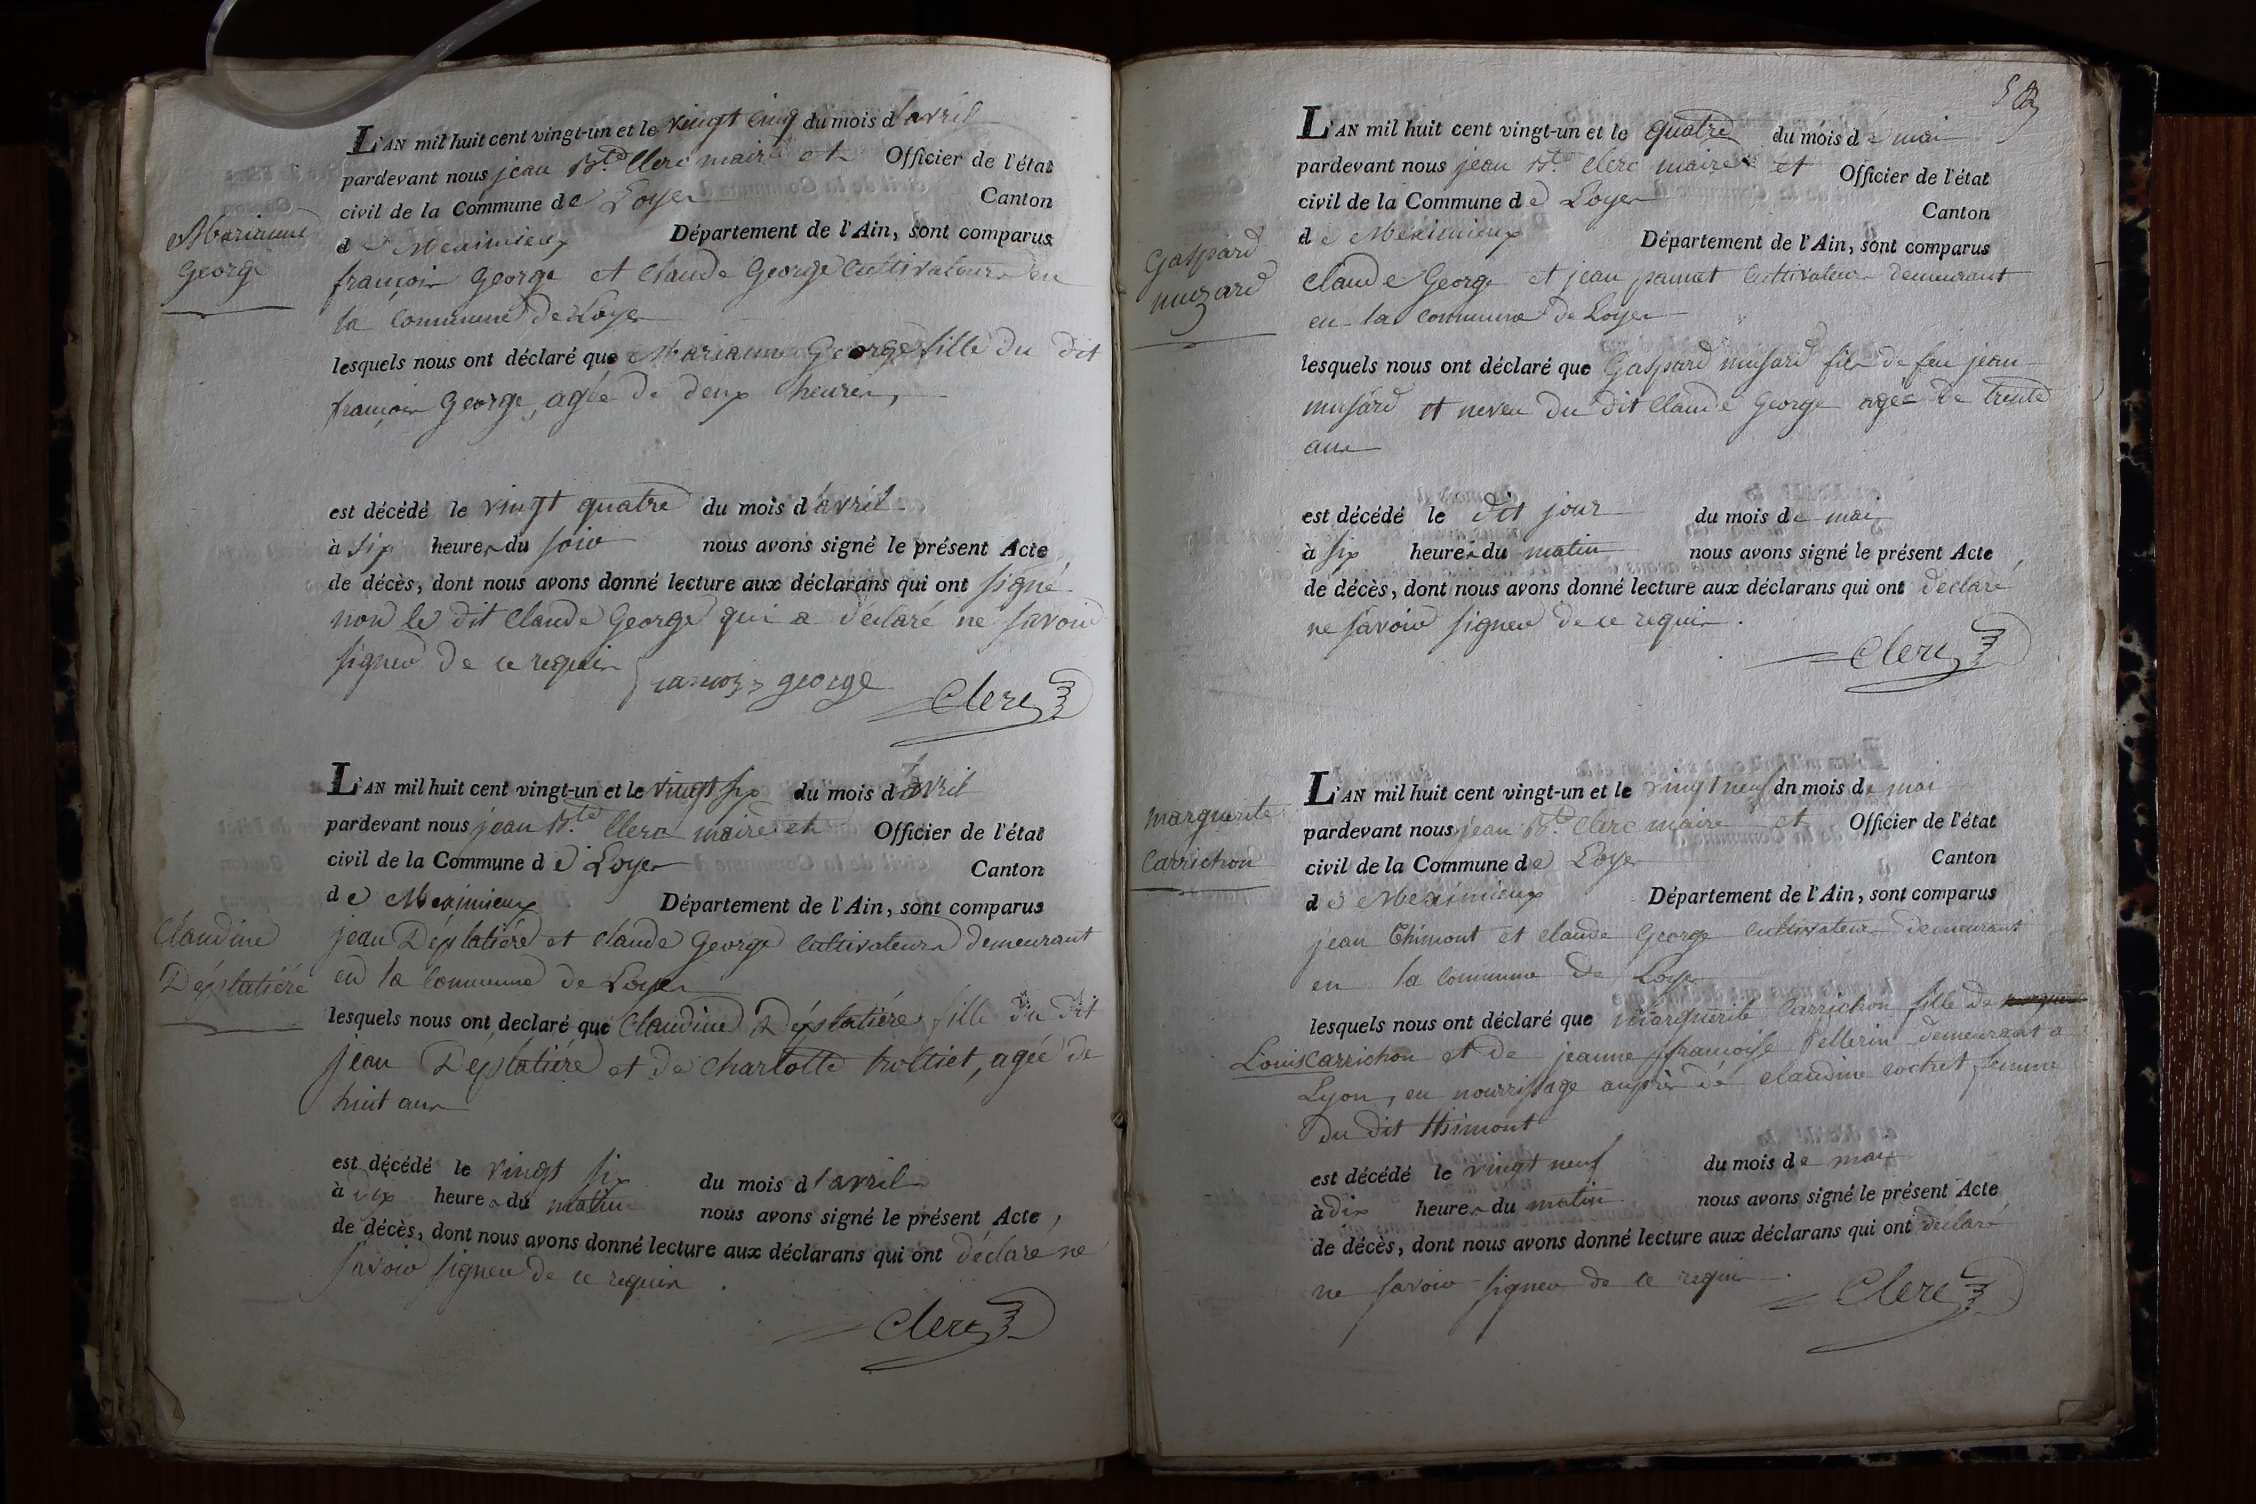 L'AN mil huit cent vingt-un et le vingt cinq du mois d'avril
pardevant nous jean Bte. Clerc maire et Officier de l'état
civil de la Commune de Loyer Canton
de Meximieux Département de l'Ain, sont comparus
Marianne
George
françois George et Claude George Cultivateurs en
la Commune de Loyer
lesquels nous ont déclaré que Marianne George fille du dit
françois George, agée de deux heures,
est décédé le vingt quatre du mois d'avril
à six heures du soir nous avons signé le présent Acte
de décès, dont nous avons donné lecture aux déclarans qui ont signé
non le dit Claude George qui a déclaré ne savoir
signer de ce requis
francois george Clerc
L'AN mil huit cent vingt-un et le vingt six du mois d'avril
pardevant nous jean Bte. Clerc maire et Officier de l'état
civil de la Commune de Loyer Canton
de Meximieux Département de l'Ain, sont comparus
Claudine
Déplatiére
jean Déplatiére et claude George Cultivateurs demeurant
en la Commune de Loyer
lesquels nous ont declaré que Claudine Déplatiére fille du dit
jean Déplatiére et de Charlotte trolliet, agée de
huit ans
est décédé le vingt six du mois d'avril
à dix heures du matin nous avons signé le présent Acte,
de décès, dont nous avons donné lecture aux déclarans qui ont déclaré ne
savoir signer de ce requis.
Clerc
L'AN mil huit cent vingt-un et le quatre du mois de mai
pardevant nous jean Bte. Clerc maire et Officier de l'état
civil de la Commune de Loyer Canton
de Meximieux Département de l'Ain, sont comparus
Gaspard
muzard
Claude George et jean pamet Cultivateurs demeurant
en la commune de Loyer
lesquels nous ont déclaré que Gaspard musard fils de feu jean
musard et neveu du dit Claude George agée de trente
ans
est décédé le dit jour du mois de mai
à six heures du matin nous avons signé le présent Acte
de décès, dont nous avons donné lecture aux déclarans qui ont déclaré
ne savoir signer de ce requis.
Clerc
L'AN mil huit cent vingt-un et le vingt neuf dn mois de mai
pardevant nous jean Bte. Clerc maire et Officier de l'état
civil de la Commune de Loyer Canton
de Meximieux Département de l'Ain, sont comparus
marguerite
Carrichon
jean Thimont et claude George Cultivateurs demeurant
en la commune de Loyer
lesquels nous ont déclaré que marguerite Carrichon fille de
Louis Carrichon et de jeanne françoise Pellerin demeurant a
Lyon, en nourrissage auprès de claudine cochet femme
du dit thimont
est décédé le vingt neuf du mois de mai
à dix heures du matin nous avons signé le présent Acte
de décès, dont nous avons donné lecture aux déclarans qui ont déclaré
ne savoir signer de ce requis.
Clerc